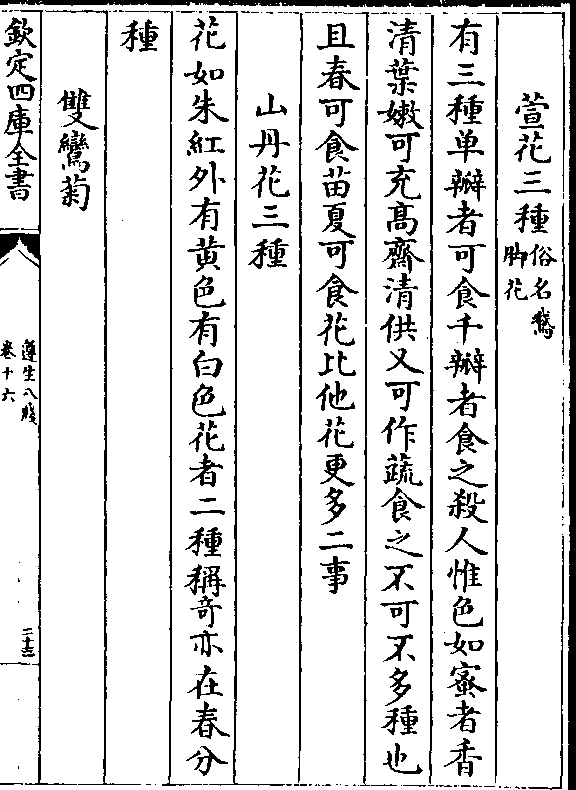 萱花三種俗名鵞脚花
有三種单瓣者可食千瓣者食之殺人惟色如蜜者香
清葉嫩可充髙齋清供又可作蔬食之不可不多種也
且春可食苗夏可食花比他花更多二事
山丹花三種
花如朱紅外有黄色有白色花者二種稱竒亦在春分
種
雙鸞菊
欽定四庫全書
遵生八牋
卷十六
二十六